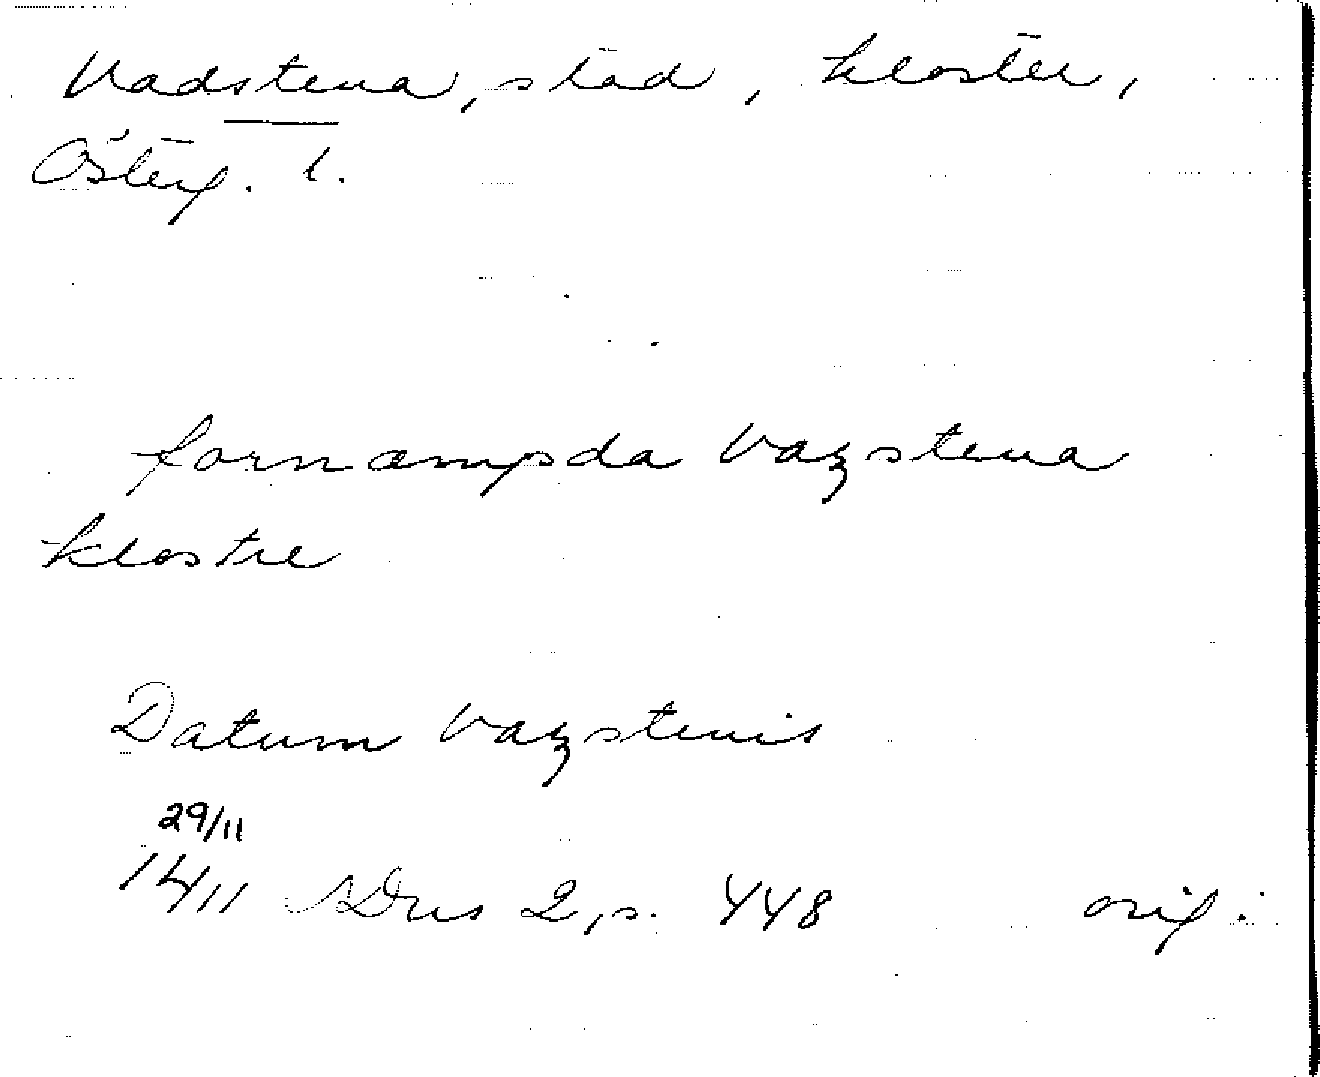 Vadstena, stad, kloster,
Österg. l.
fornæmpda Vazstena
klostre
Datum Vazstenis
29/11
14/11 SDns 2, s. 448 orig.